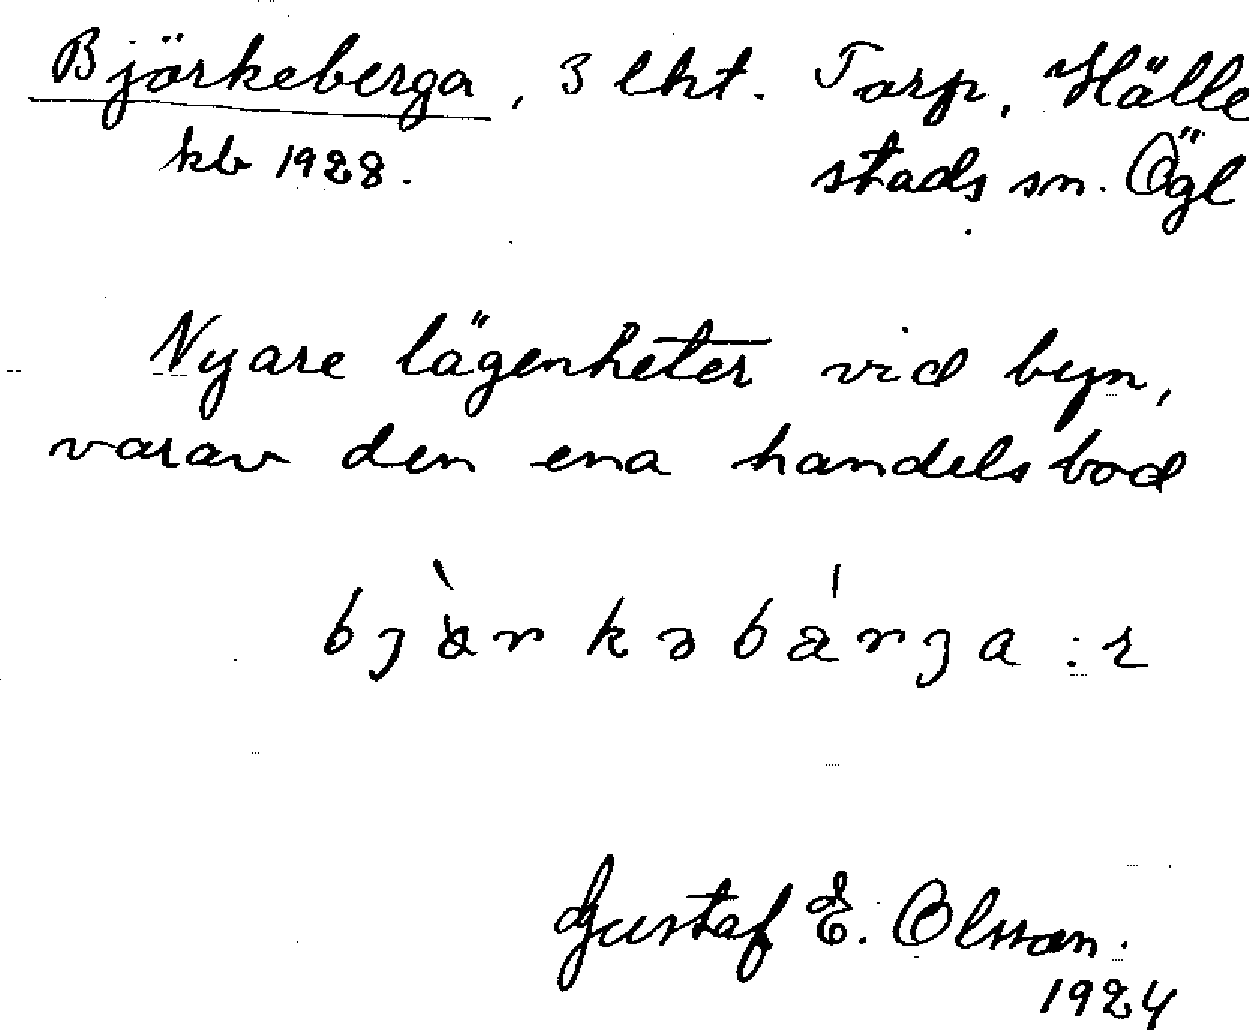 Björkeberga, 3 lht. Torp, Hälle
kb 1928. stads sn. Ögl
Nyare lägenheter vid byn,
varav den ena handelsbod
Gustaf E. Olsson.
1924